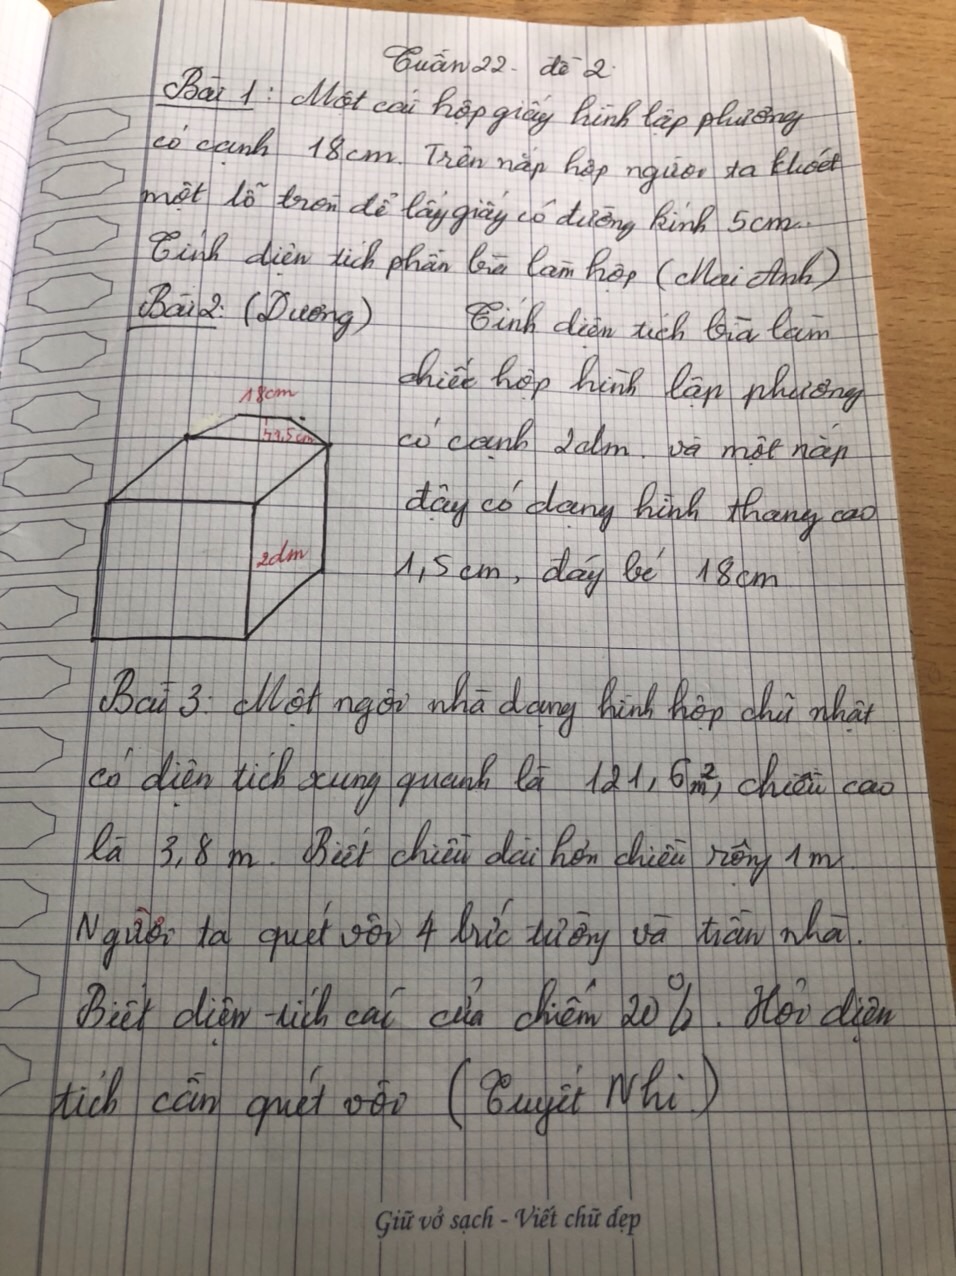 Tuần 22. đề 2
Bài 1: Một cái hộp giấy hình lập phương
có cạnh 18cm. Trên nắp hộp người ta khoét
một lỗ tròn để lấy giấy có đường kính 5cm.
Tính diện tích phần bìa làm hộp (Mai Anh)
Bài 2: (Dương) Tính diện tích bìa làm
chiếc hộp hình lập phương
18cm
1,5cm
có cạnh 2dm. và một nắp
đậy có dạng hình thang cao
2dm
1,5cm, đáy bé 18cm
Bài 3: Một ngôi nhà dạng hình hộp chữ nhật
có diện tích xung quanh là 121,6m², chiều cao
là 3,8 m. Biết chiều dài hơn chiều rộng 1m.
Người ta quét vôi 4 bức tường và trần nhà.
Biết diện tích các cửa chiếm 20%. Hỏi diện
tích cần quét vôi (Tuyết Nhi)
Giữ vở sạch - Viết chữ đẹp